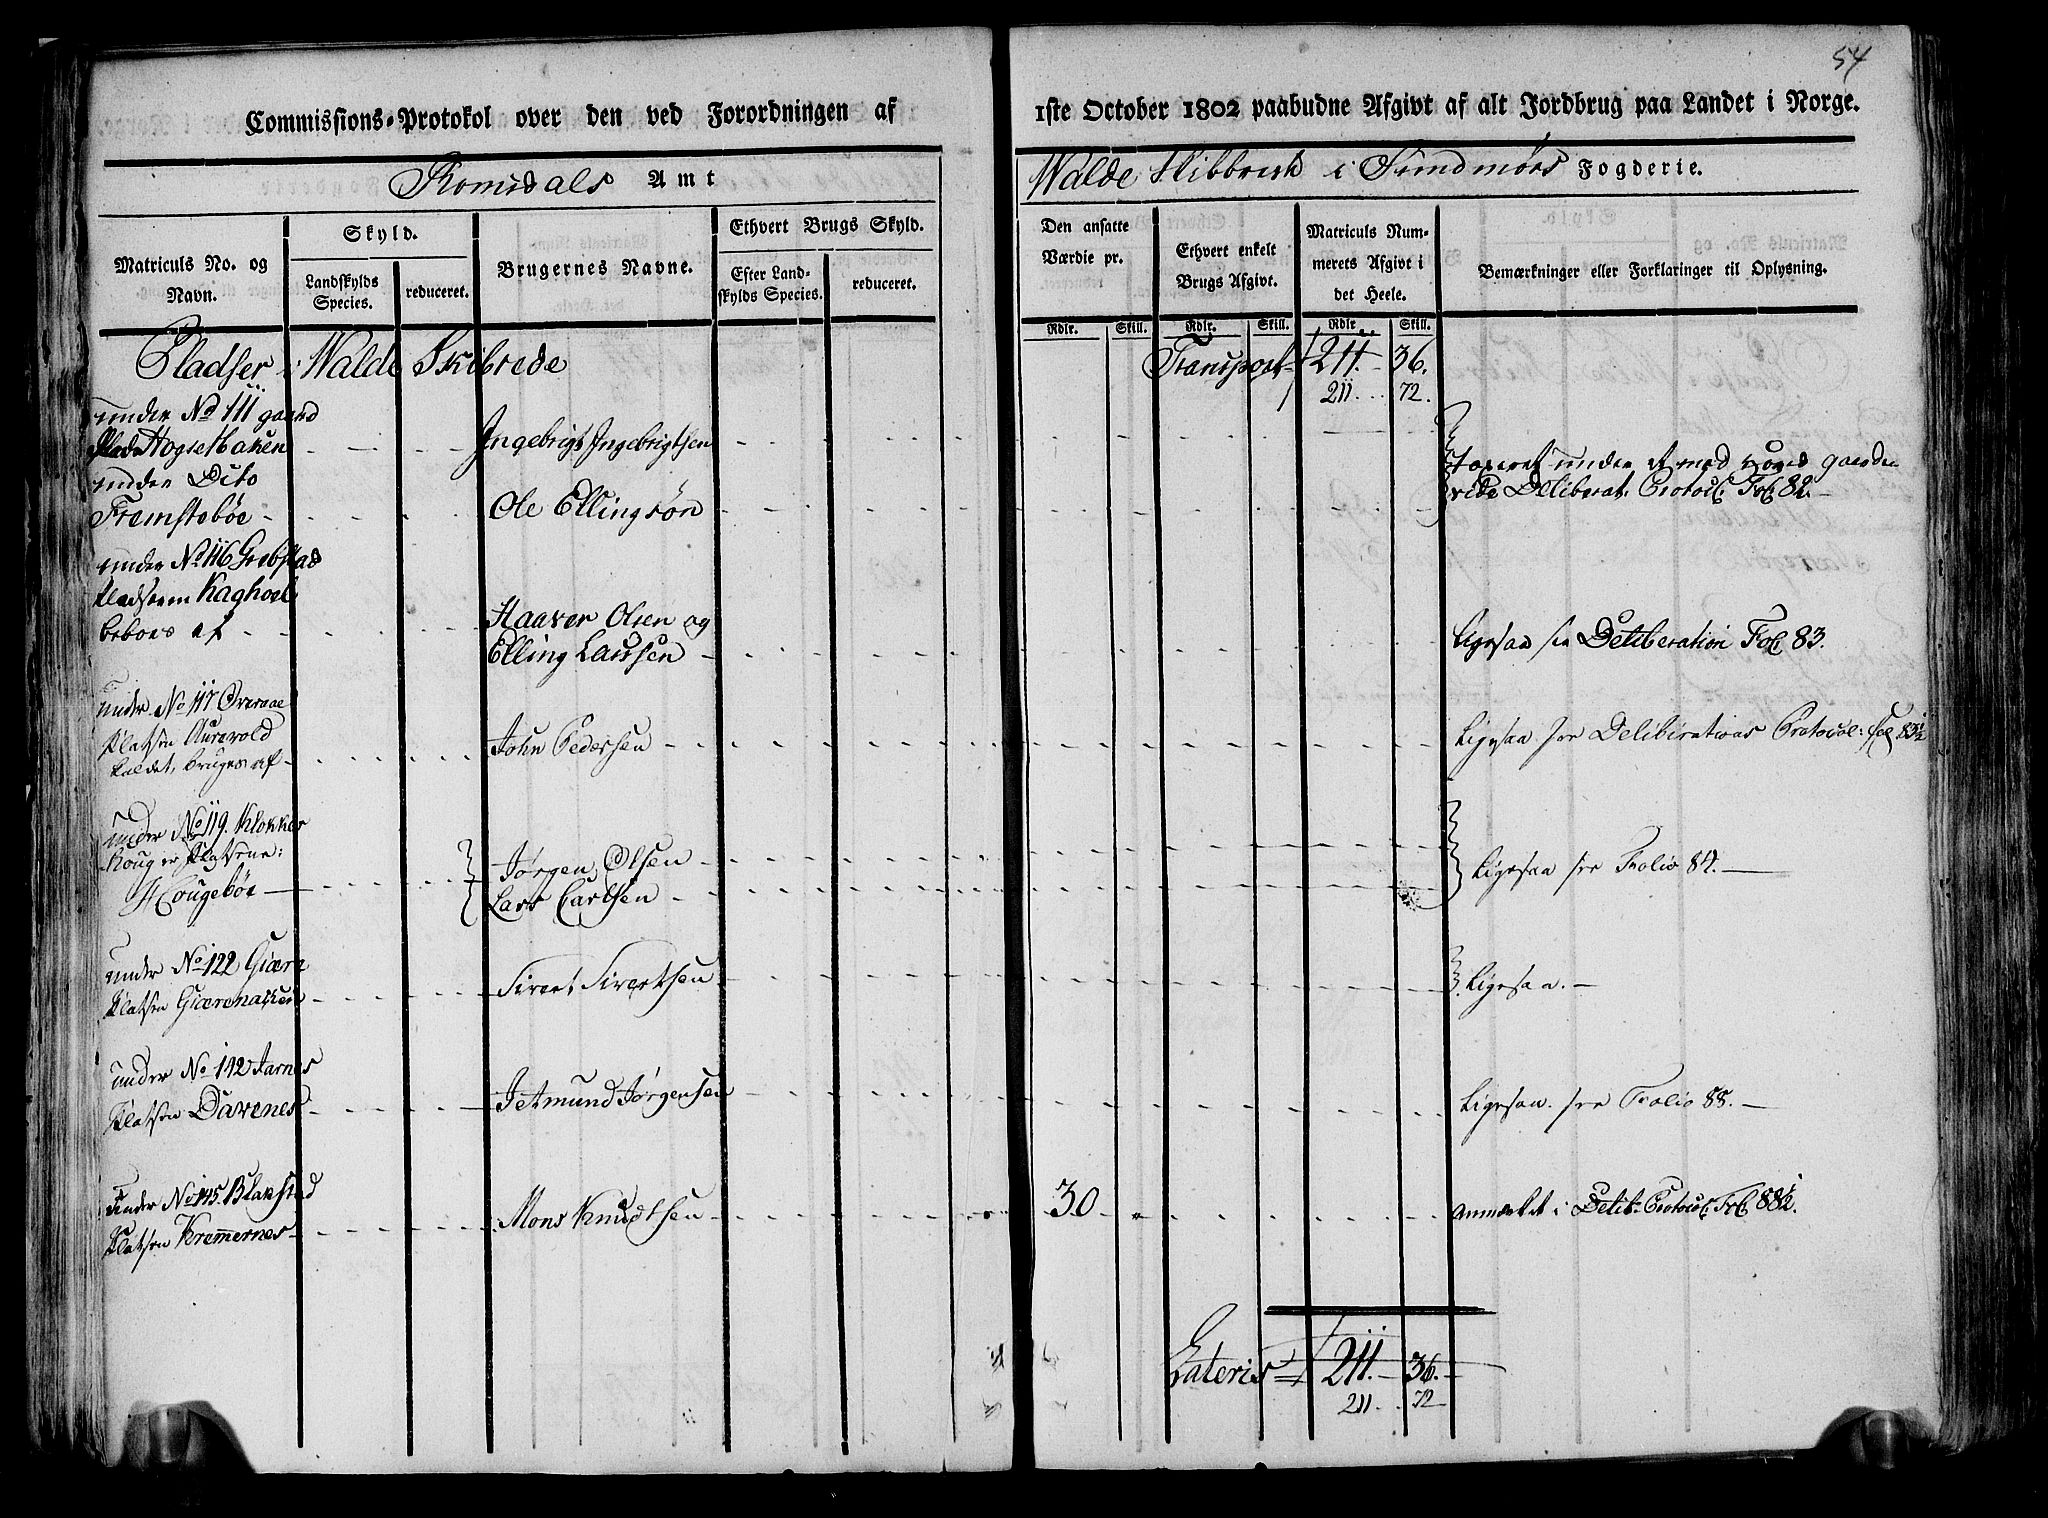 54
Commissions-Protokol over den ved Forordningen af
1ste October 1802 paabudne Afgivt af alt Jordbrug paa Landet i Norge.
Romsdals Amt
Walde Skibbrede i Sundmørs Fogderie.
Matriculs No. og Navn.
Skyld.
Landskylds Species.
reduceret.
Brugernes Navne.
Ethvert Brugs Skyld.
Efter Landskylds Species.
reduceret.
Den ansatte Værdie pr.
Ethvert enkelt Brugs Afgivt.
Matriculs Nummerets Afgivt i det Heele.
Bemærkninger eller Forklaringer til Oplysning.
Rdlr. Skill. Rdlr. Skill. Rdlr. Skill.
Pladser i Walde Skibrede
Transport 211. 36.
211 72.
under No 111 gaard
Plads Hogsethaken
Ingebrigt Ingebrigtsen
under Dito
Fremstebøe
Ole Ellingsøn
taxeret under et med gaarden
vide Deliberat: Protocl. Fol. 82.
under No 116 Grebstad
Pladsen Kaghoel
beboes af
Haaver Olsen og
Elling Larssen
Ligesaa see Deliberation Fol 83.
under No 117 Overaae
Platsen Aurevold
kaldet, bruges af
John Pedersen
Ligesaa see Deliberations Protocol: fol 83½
under No 119. Klokker
Houg er Platsene:
Hougebøe
Jørgen Olsen
Lars Carlsen
Ligesaa see Folio 84.
under No 122 Giære
Platsen Giærenakken
Sivert Sivertsen
Ligesaa.
under No 142 Aarnes
Platsen Davenes
Jetmund Jørgensen
Ligesaa. see Folio 88.
under No 145. Blakstad
Platsen Kremmernes
Mons Knudtsen
30
anmærket i Delib: Protocol. Fol 88½.
Lateris 211. 36.
211. 72